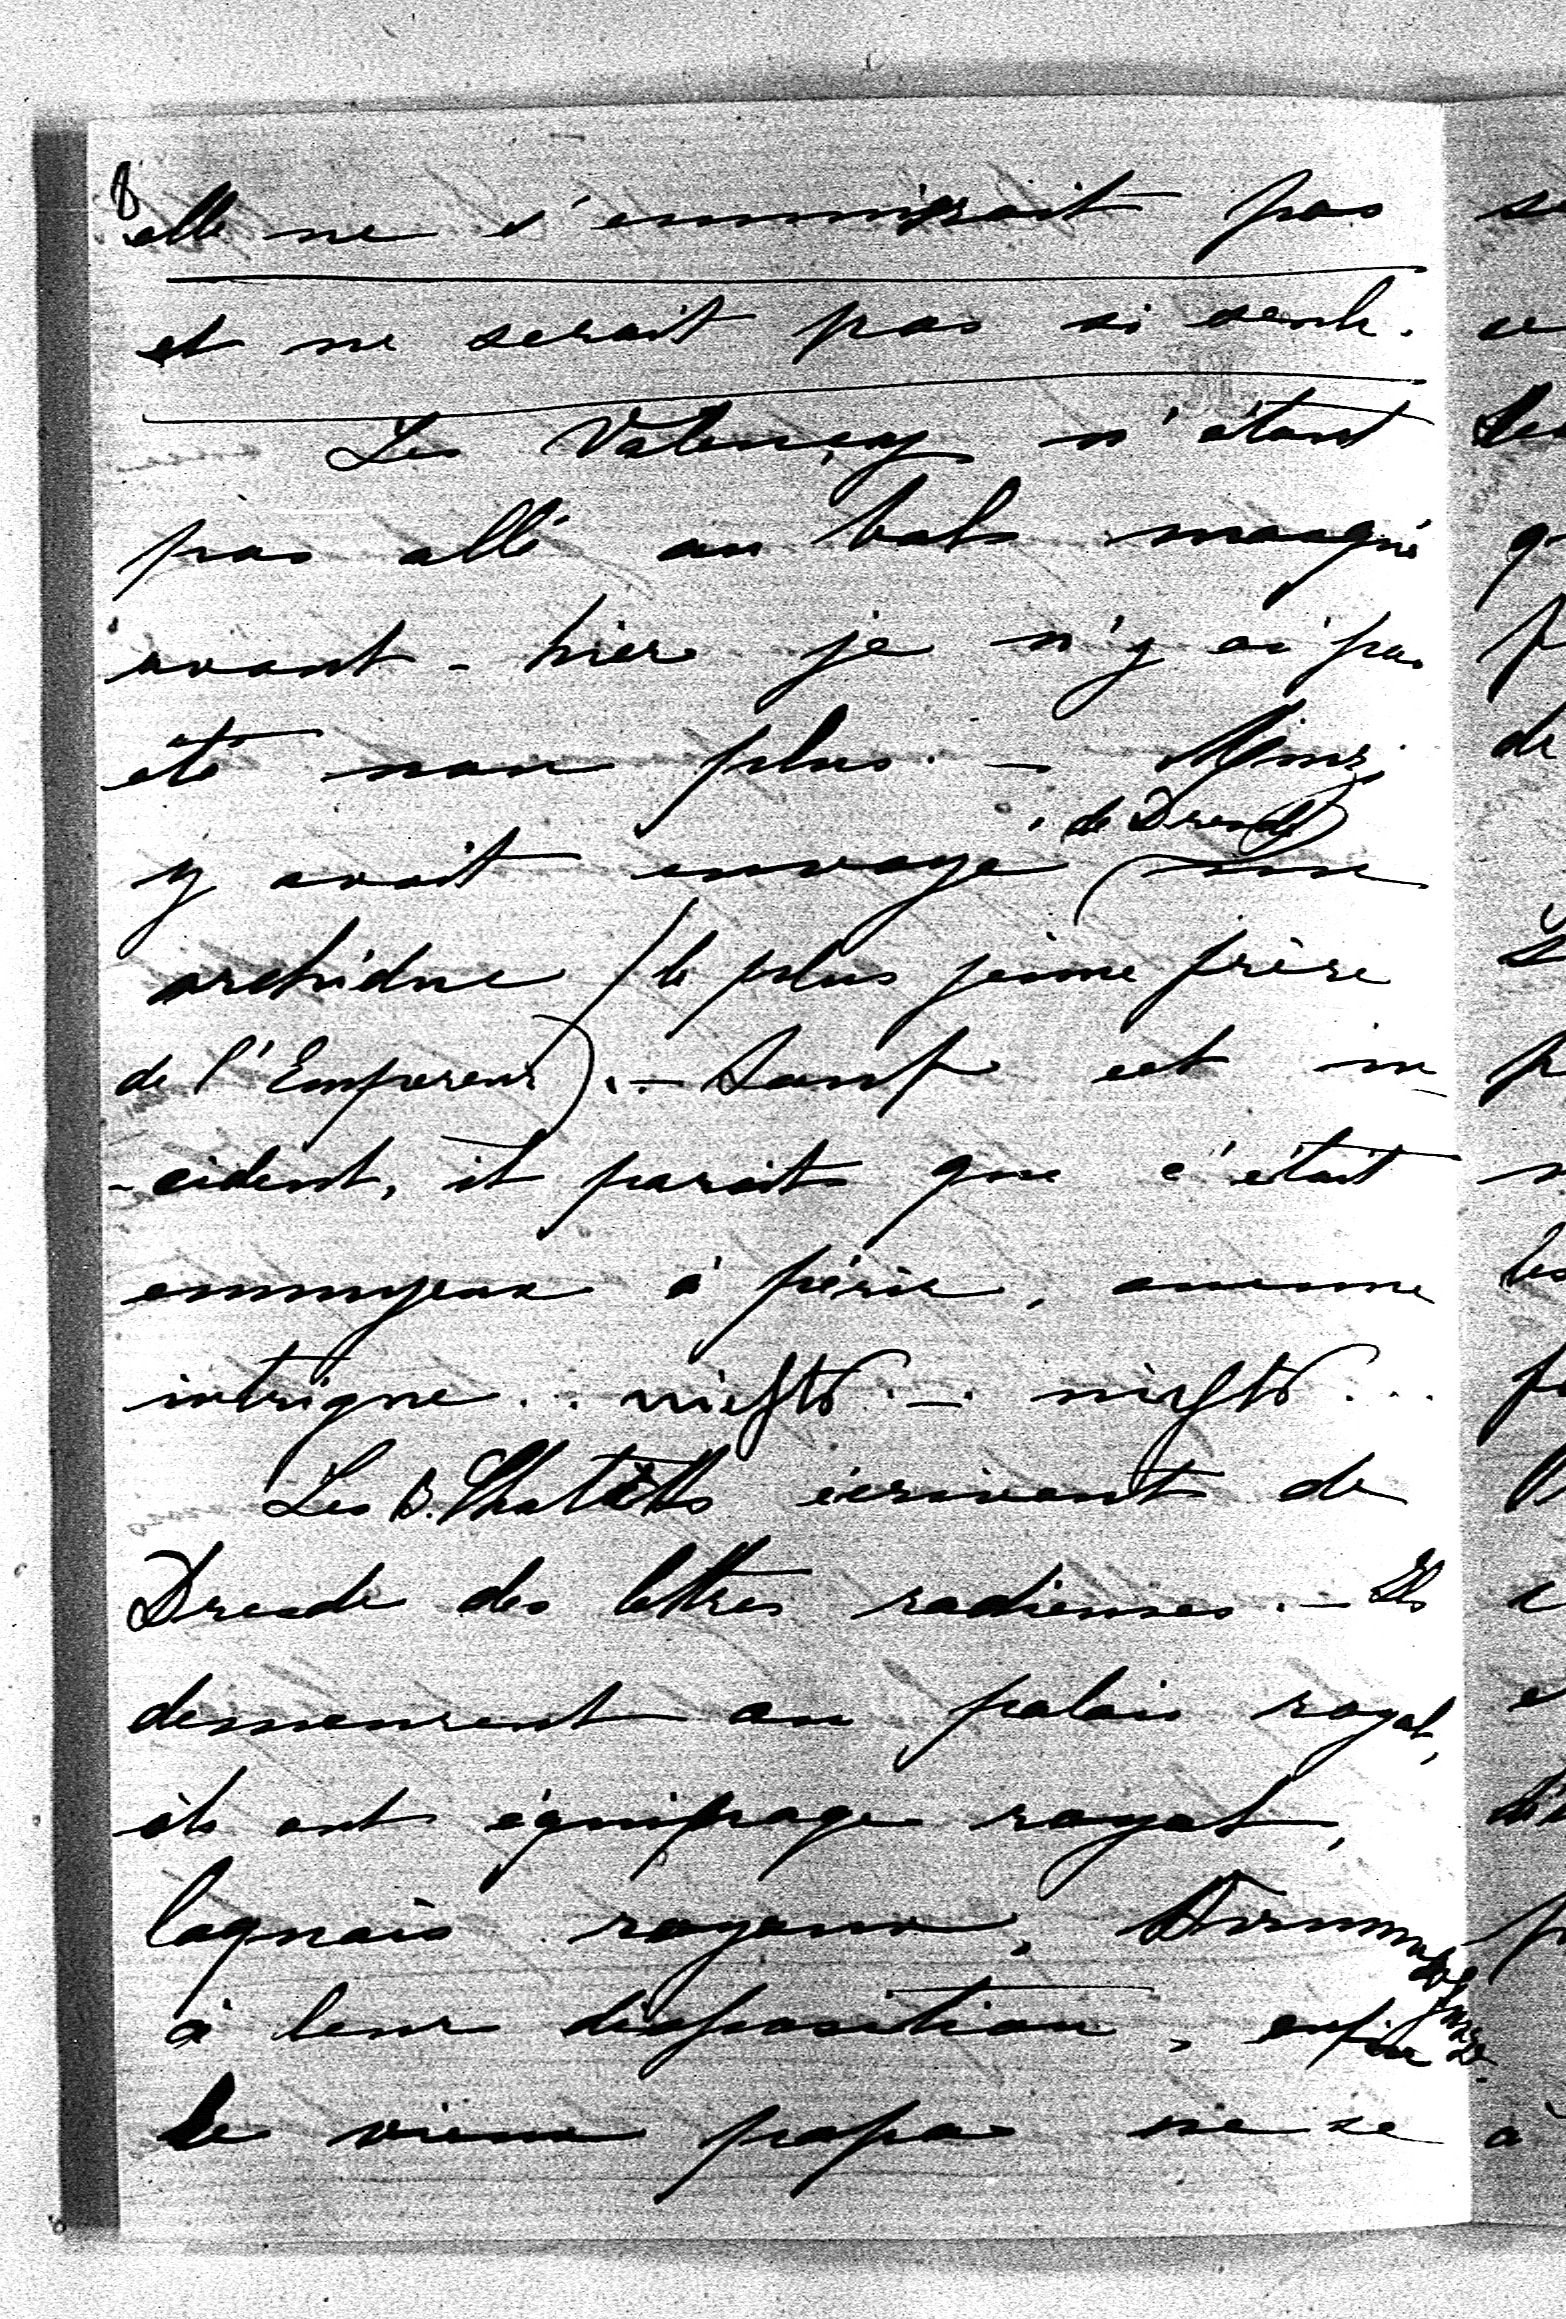 8
elle ne s'ennuierait pas
et ne serait pas si seule.
Les Valençay n'étant
pas allé au bals masqué
avant-hier je n'y ai pas
été non plus. —
de Dresde
y avait envoyé (un
archiduc (le plus jeune frère
de l'Empereur). — Sauf cet in
-cident, il parait que c'était
ennuyeux à périr, aucune
intrigue .. nichts — nichts ...
Les B. écrivent de
Dresde des lettres radieuses. — Ils
demeurent au palais royal,
ils ont équipage royal,
laquais royaux,
à leur disposition, enfin
le vieux papa ne se